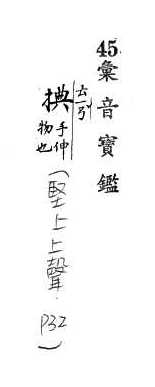 45.彙音寶鑑
去一引
㨂手伸物也
(堅上上聲.P32)